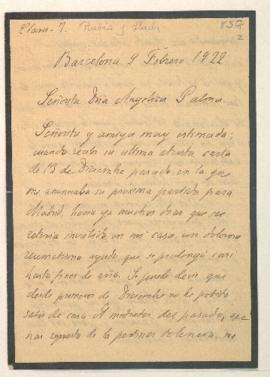 Barcelona 9 Febrero 1922
Señorita Dña Angélica Palma
Señorita y amiga muy estimada:
cuando recibí su última atenta carta
de 13 de Diciembre pasado, en la que
nos anunciaba su próxima partida para
Madrid, hacía ya muchos días que me
retenía inválido en mi casa, un
reumatismo agudo, que se prolongó casi
hasta fines de año. Se puede decir que
desde primeros de Diciembre no he podido
salir de casa. A mediados del pasado, ape-
nas repuesto de la pertinaz dolencia, me